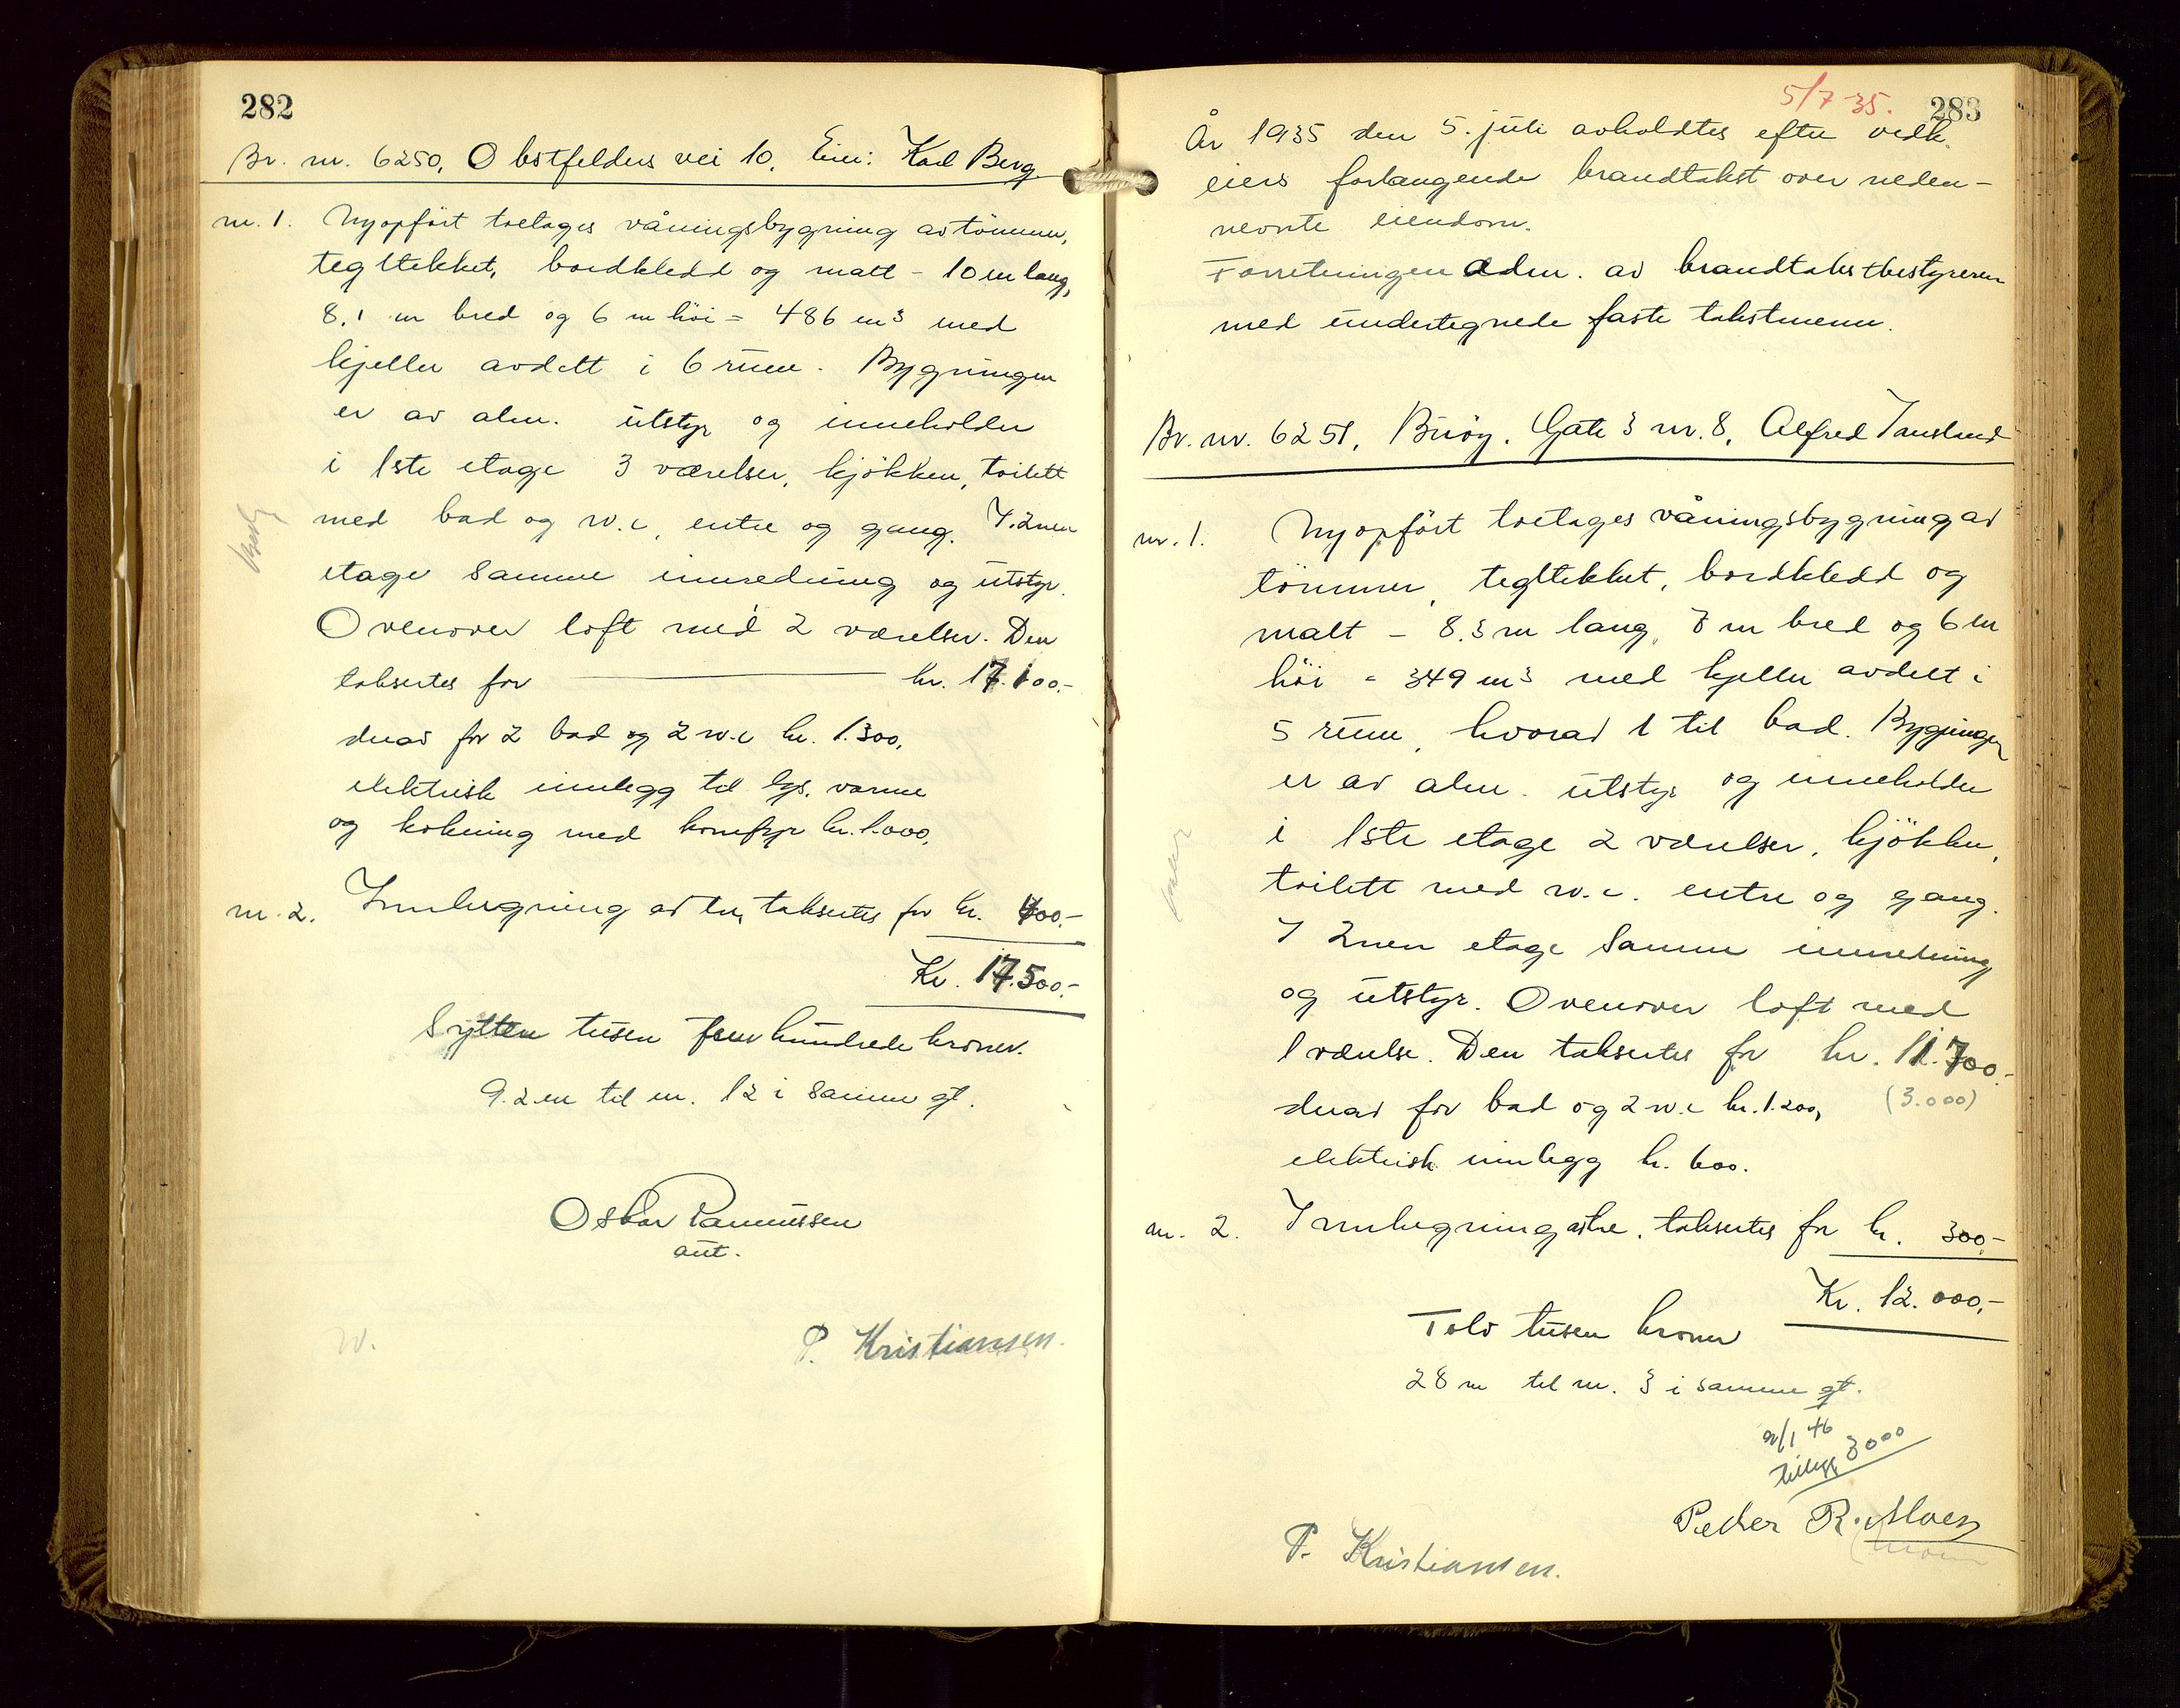 282
Br. nr. 6250, Obstfelders vei 10. Eier: Karl Berg.
nr. 1. Nyopført toetages våningsbygning av tömmer,
tegltekket, bordkledd og malt - 10 m lang,
8,1 m bred og 6 m höi = 486 m³ med
kjeller avdelt i 6 rum. Bygningen
er av alm. utstyr og inneholder
i 1ste etage 3 værelser, kjökken, toilett
med bad og w.c, entre og gang. I 2nen
etage samme innredning og utstyr.
Ovenover loft med 2 værelser. Den
taksertes for kr. 17.100.-
derav for 2 bad og 2 w.c kr. 1.300,
elektrisk innlegg til lys, varme
og kokning med komfyr kr. 1.000,
nr. 2. Innhegning av tre, taksertes for kr. 400.-
Kr. 17.500.-
Sytten tusen fem hundrede kroner.
9.2 m til nr. 12 i samme gt.
Oskar Rasmussen
aut.
P. Kristiansen.
5/7-35. 283
År 1935 den 5. juli avholdtes efter vedk.
eiers forlangende brandtakst over neden-
nevnte eiendom.
Forretningen adm. av brandtakstbestyreren
med undertegnede faste takstmenn.
Br. nr. 6251, Buöy. Gate 3 nr. 8, Alfred Tausland
nr. 1. Nyopfört toetages våningsbygning av
tömmer, tegltekket, bordkledd og
malt - 8.3 m lang, 7 m bred og 6 m
höi = 349 m³ med kjeller avdelt i
5 rum, hvorav 1 til bad. Bygningen
er av alm. utstyr og inneholder
i 1ste etage 2 værelser, kjökken,
toilett med w.c. entre og gang.
I 2nen etage samme innredning
og utstyr. Ovenover loft med
1 værelse. Den taksertes for kr. 11.700.-
derav for bad og 2 w.c kr. 1.200, (3.000)
elektrisk innlegg kr. 600.
nr. 2. Innhegning av tre, taksertes for kr. 300.-
Kr. 12.000,-
Tolv tusen kroner
28 m til nr. 3 i samme gt.
/1 46
tillegg 3000
Peder R. Moen
P. Kristiansen.